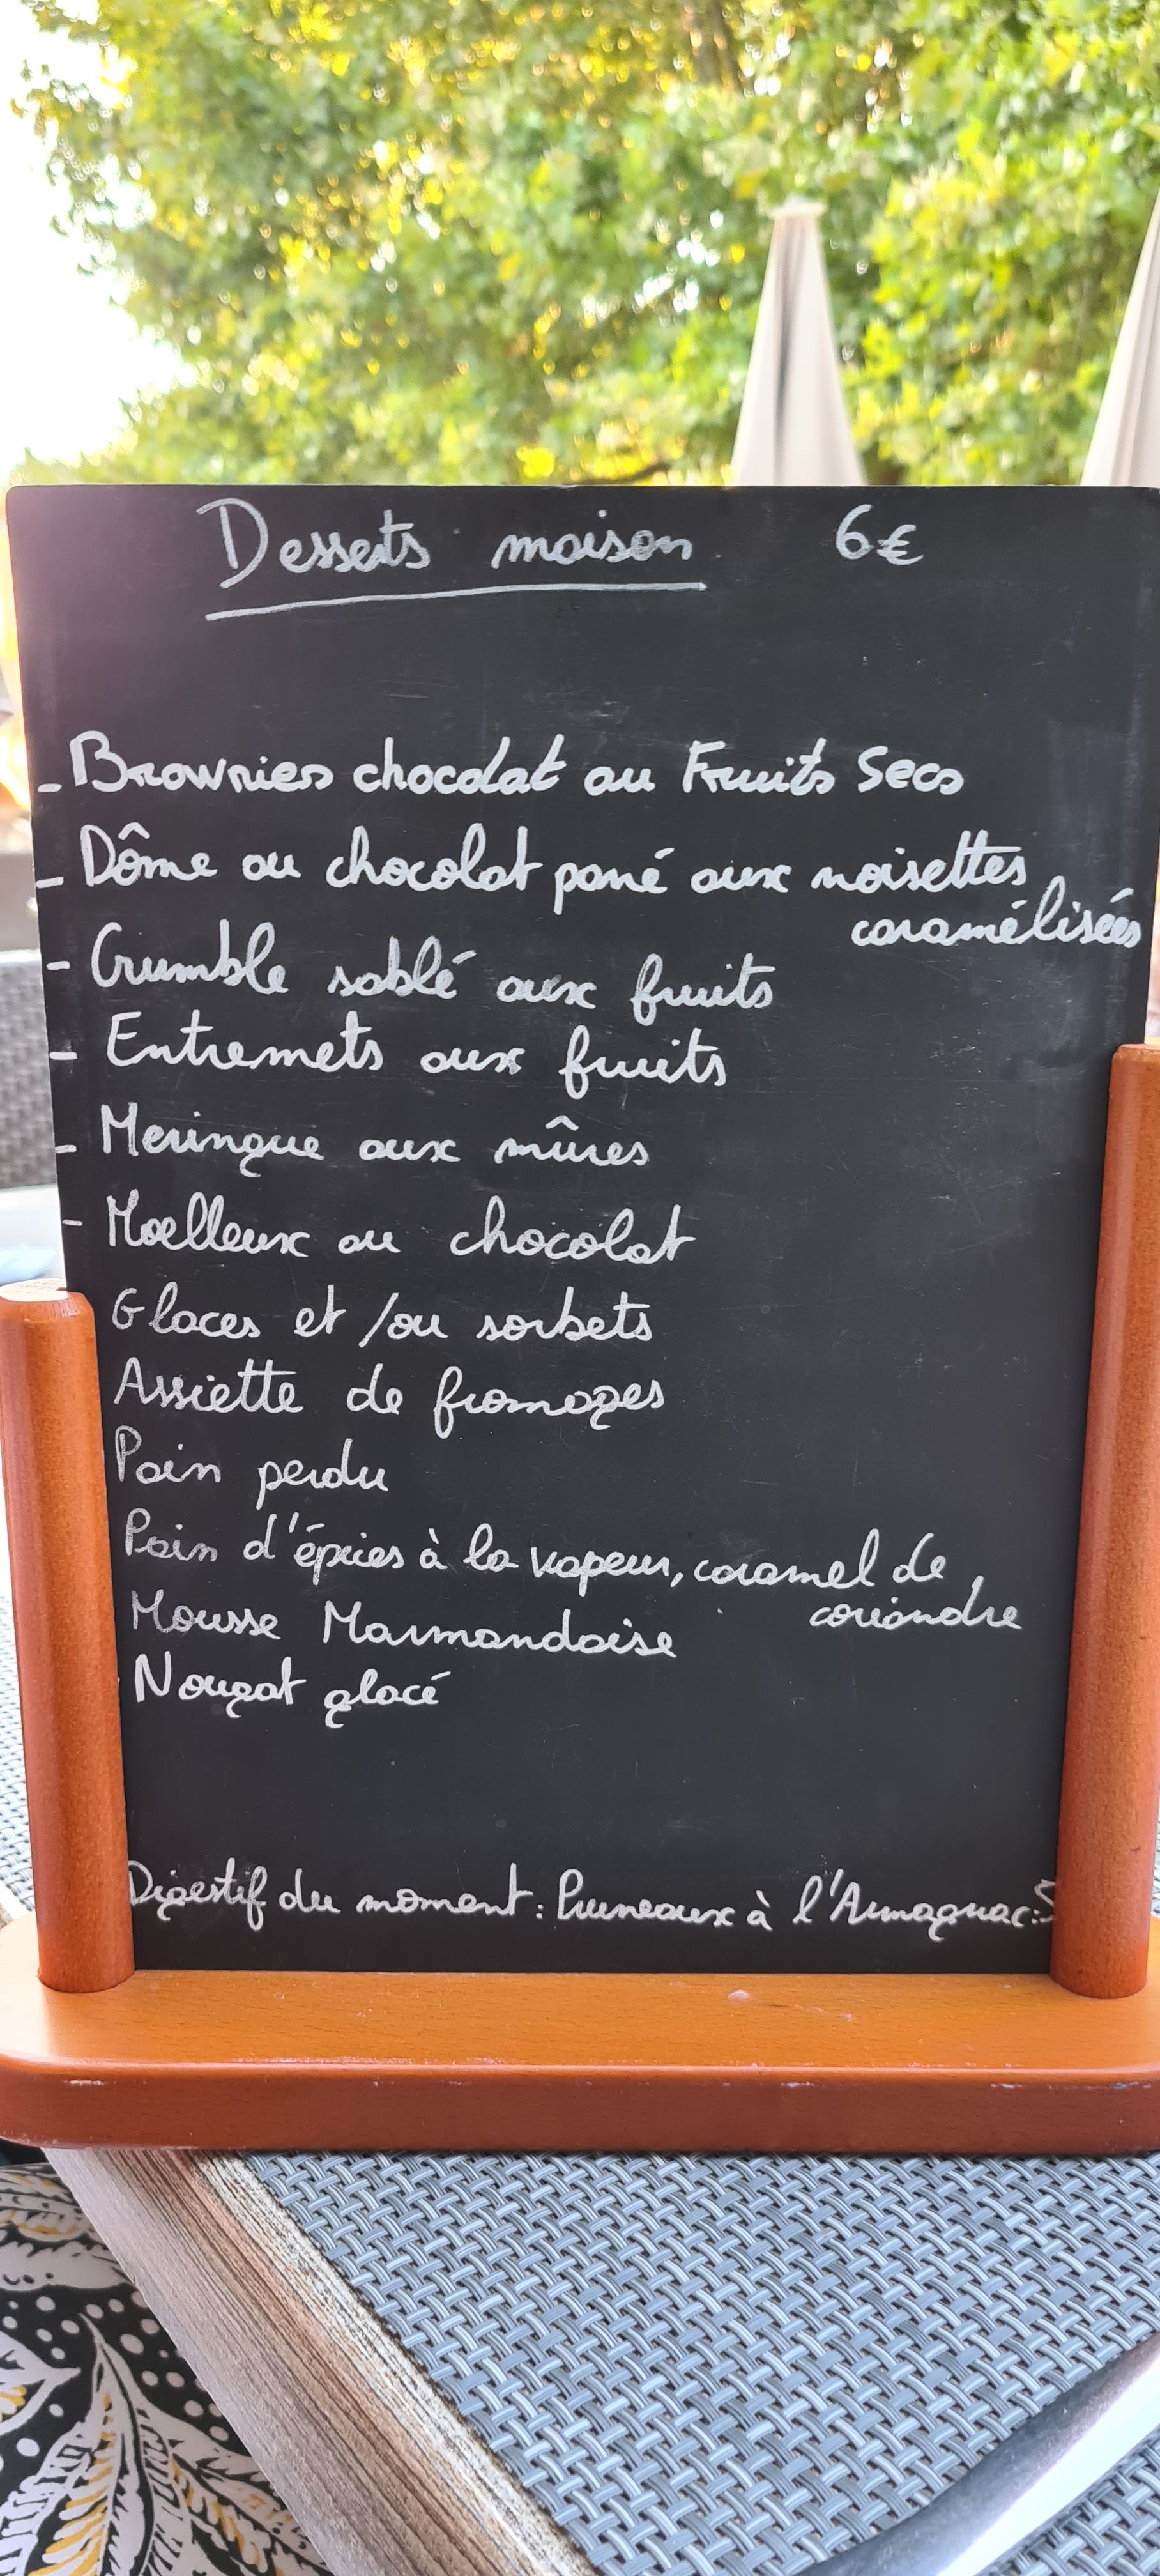 Desserts maison 6€
- Brownies chocolat au Fruits Secs
- Dôme au chocolat pané aux noisettes
caramélisées
- Crumble sablé aux fruits
- Entremets aux fruits
- Meringue aux mûres
- Moelleux au chocolat
Glaces et /ou sorbets
Assiette de fromages
Pain perdu
Pain d'épices à la vapeur, caramel de
coriandre
Mousse Marmandaise
Nougat glacé
Digestif du moment: Pruneaux à l'Armagnac:5